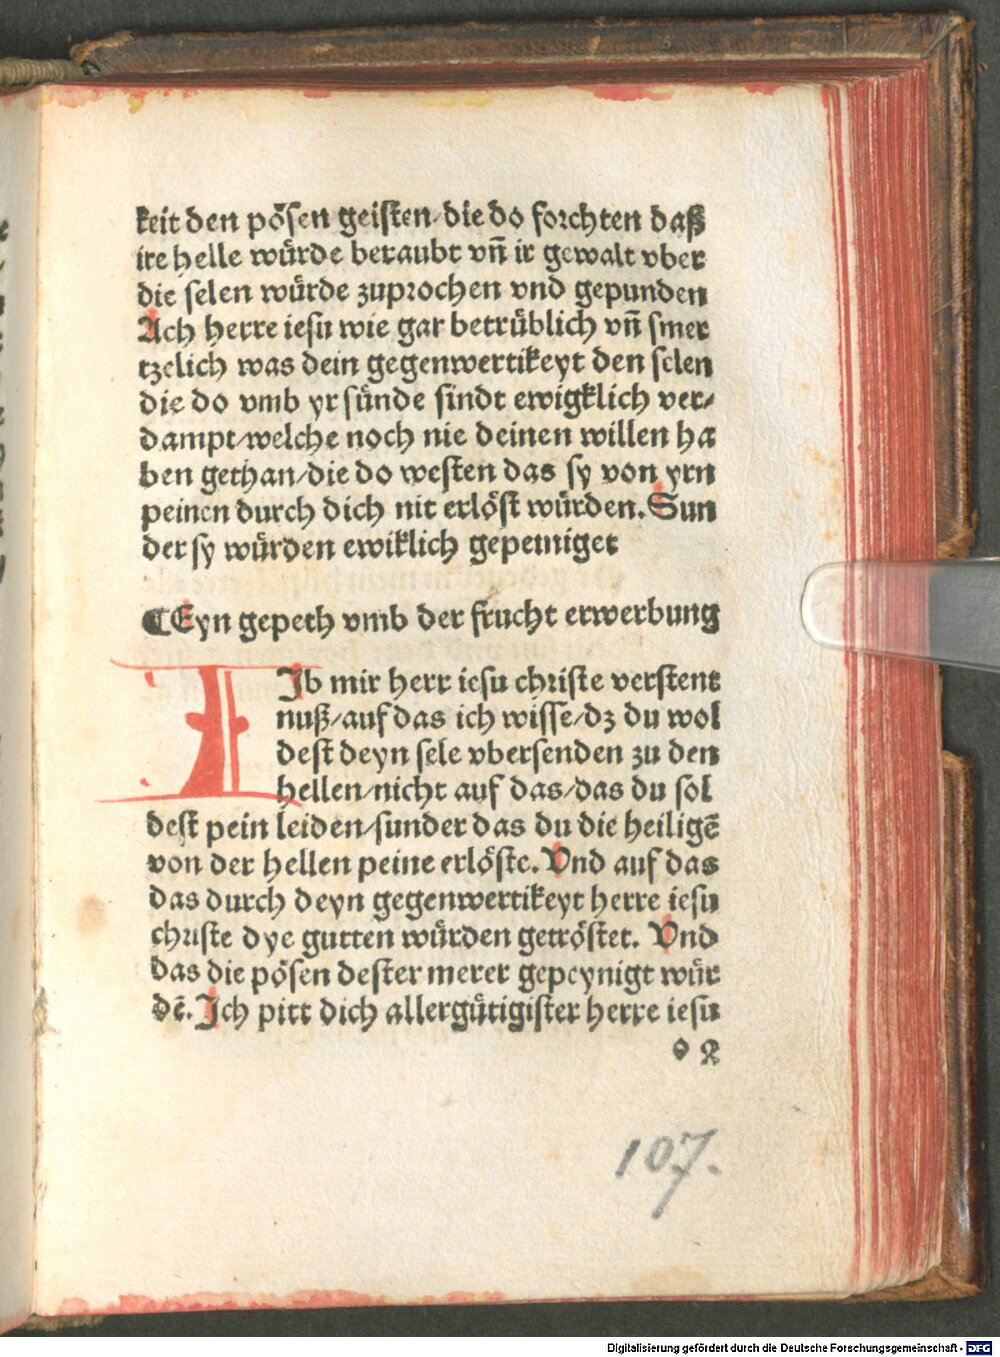 keit den pösen geisten/die do forchten daß
ire helle würde beraubt vñ ir gewalt vber
die selen würde zuprochen vnd gepunden
Ach herre iesu wie gar betrüblich vñ smer
tzelich was dein gegenwertikeyt den selen
die do vmb yr sünde sindt ewigklich ver/
dampt/welche noch nie deinen willen ha
ben gethan/die do westen das sy von yrn
peinen durch dich nit erlöst würden. Sun
der sy würden ewiklich gepeiniget
¶Eyn gepeth vmb der frucht erwerbung
Ib mir herr iesu christe verstent
nuß/auf das ich wisse/dz du wol
dest deyn sele vbersenden zu den
hellen/nicht auf das/das du sol
dest pein leiden/sunder das du die heiligē
von der hellen peine erlöste. Vnd auf das
das durch deyn gegenwertikeyt herre iesu
christe dye gutten würden getröstet. Vnd
das die pösen dester merer gepeynigt wür
dē. Ich pitt dich allergütigister herre iesu
107.
Digitalisierung gefördert durch die Deutsche Forschungsgemeinschaft - DFG